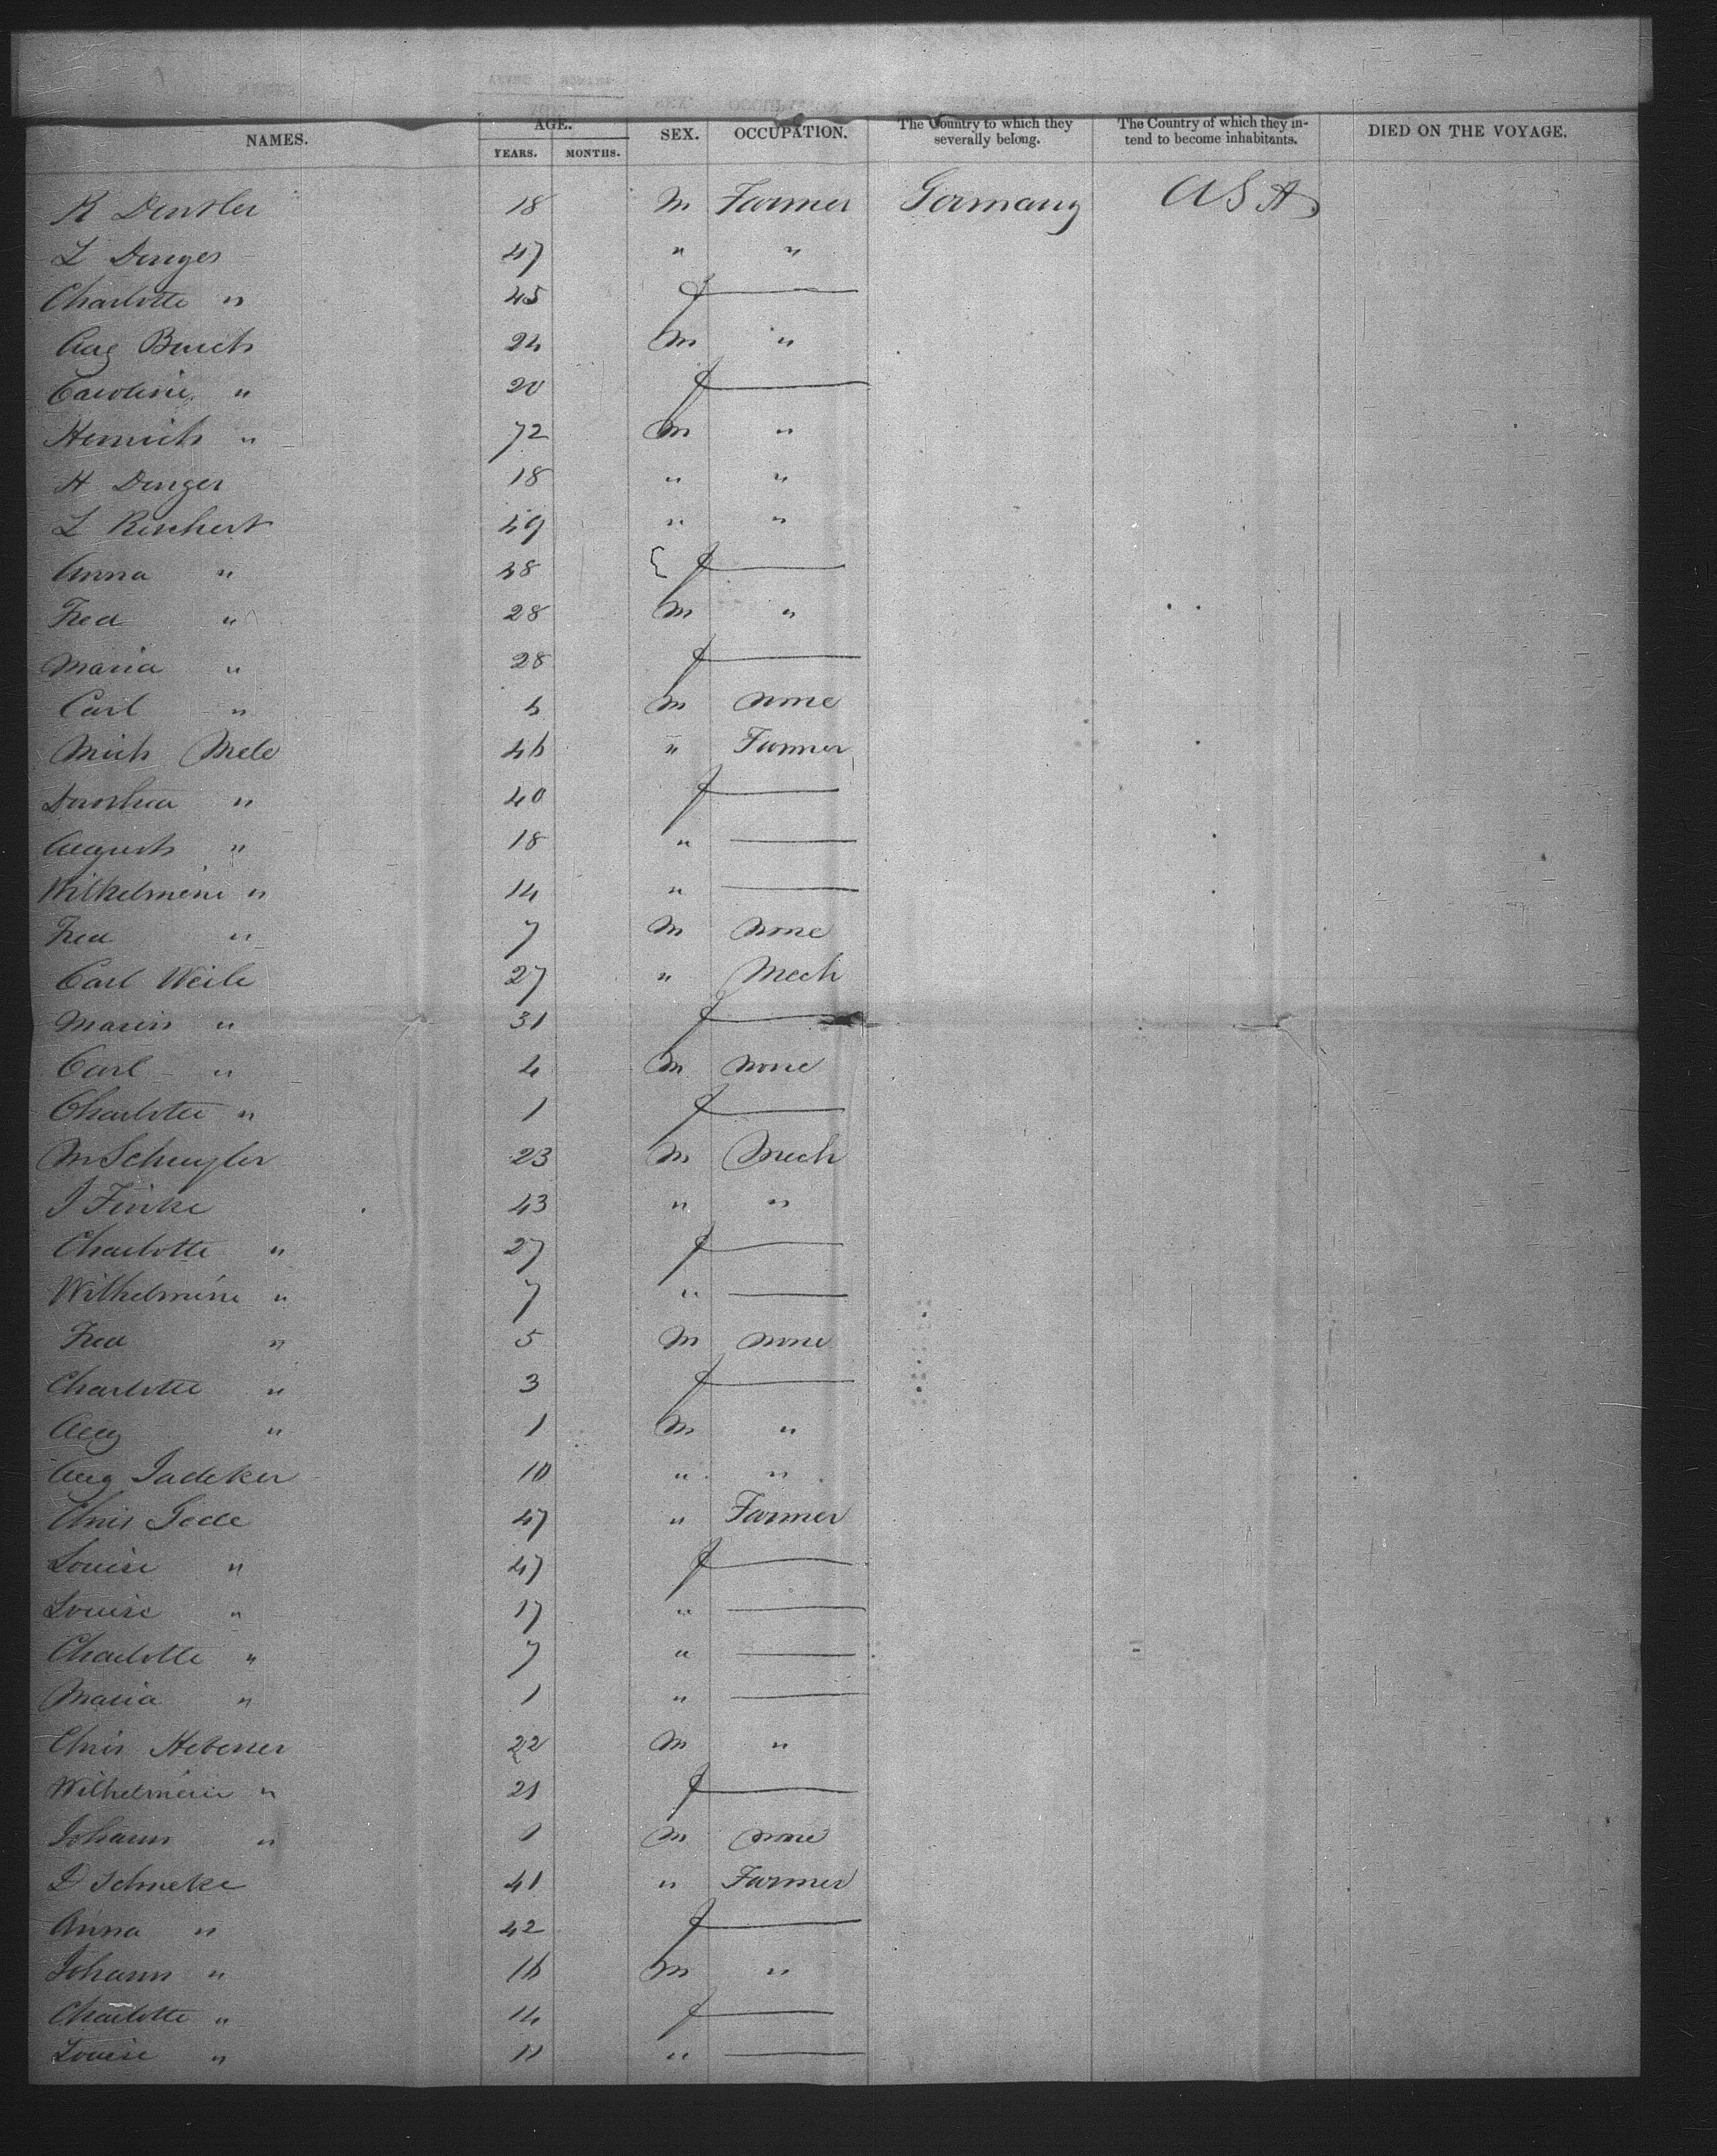 NAMES. AGE. YEARS. MONTHS. SEX. OCCUPATION. The Country to which they severally belong. The Country of which they intend to become inhabitants. DIED ON THE VOYAGE.
R 18 M Farmer Germany U S A
L Dinges 47 " "
Charlotte " 45 f —
Aug Busch 24 M "
Caroline " 20 f —
Heinrich " 72 M "
H Dinger 18 " "
L Reichert 49 " "
Anna " 48 f —
Fred " 28 M "
Maria " 28 f —
Carl " M none
Mich Mele 46 " Farmer
Dorothea " 40 f —
August " 18 " —
Wilhelmine " 14 " —
Fred " 7 M none
Carl Weile 27 " Mech
Marin " 31 f —
Carl " 4 M none
Charlotte " 1 f —
M Schuyler 23 M Mech
J Finke 43 " "
Charlotte " 27 f —
Wilhelmine " 7 " —
Fred " 5 M none
Charlotte " 3 f —
Aug " 1 M "
Aug Jadeker 10 " "
Chris Gede 47 " Farmer
Louise " 47 f —
Louise " 17 " —
Charlotte " 7 " —
Maria " 1 " —
Chris Hebener 22 M "
Wilhelmine " 21 f —
Johann " M none
D Schneke 41 " Farmer
Anna " 42 f —
Johann " 16 M "
Charlotte " 14 f —
Louise " 11 " —